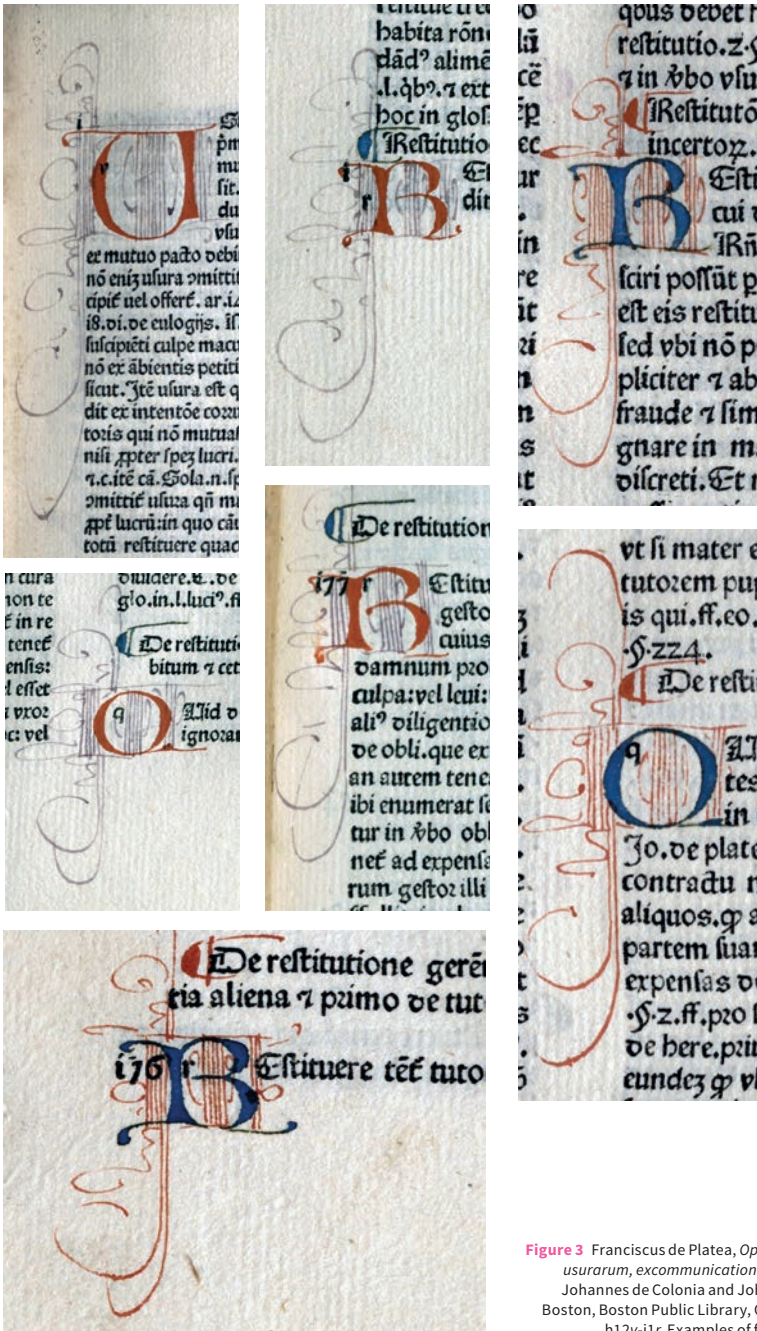 pm̄
mu
sit.
du
vsu
ex mutuo pacto debi
nō eniȝ usura ↄmittit
i8.di.de eulogijs. iſ
suscipiēti culpe macu
nō ex ābientis petiti
sicut. Itē usura est q
dit ex intentōe corru
toris qui nō mutuas
nisi ꝓpter speȝ lucri.
ꝓpt̄ lucrū:in quo cāu
totū restituere quac
habita rōne
dādꝰ alimē
hoc in glos
Restitutio
i
r
Esti
dit
qbus debet r
restitutio.z.§
⁊ in v̓bo vsu
Restitutō
incertoꝝ.
Esti
cui d
Rn̄
sciri possūt p
est eis restitu
sed vbi nō p
pliciter ⁊ ab
fraude ⁊ sim
gnare in m
discreti. Et n
n cura
non te
t̄ in re
tenet̄
ensis:
l esset
vxor
c: vel
diuidere.
glo.in.l.luciꝰ.ff
De restituti
bitum ⁊ cet
q
VIid d
ignoran
De restitution
i77 r
Estitu
gesto
cuius
damnum pro
culpa:vel leui:
aliꝰ diligentio
de obli.que ex
an autem tene
ibi enumerat se
tur in v̓bo obl
net̄ ad expensa
rum gestor illi
vt si mater e
tutorem pup
is qui.ff.eo.
.§.224.
De resti
q
tes
in
Jo.de plate
contractu n
aliquos.ꝙ a
partem suam
expensas de
.§.z.ff.pro s
de here.prin
eundeȝ ꝙ vl
De restitutione gerē
tia aliena ⁊ primo de tut
i76 r
Estituere tēt̄ tuto
Figure 3 Franciscus de Platea, Op
usurarum, excommunication
Johannes de Colonia and Joh
Boston, Boston Public Library, 
h12v-i1r. Examples of f